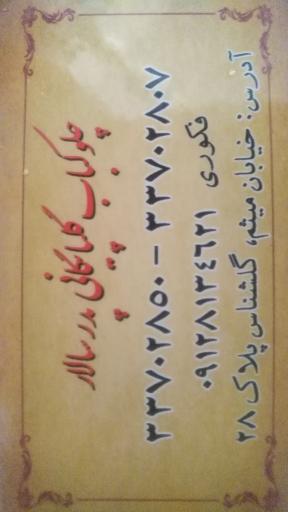 چلوکباب گلپایگانی پدرسالار
۳۳۷۰۲۸۵۰ - ۳۳۷۰۲۸۰۷
فکوری ۰۹۱۲۸۱۳٤٦۲۱
آدرس: خیابان میثم، گلشناس پلاک ۲۸